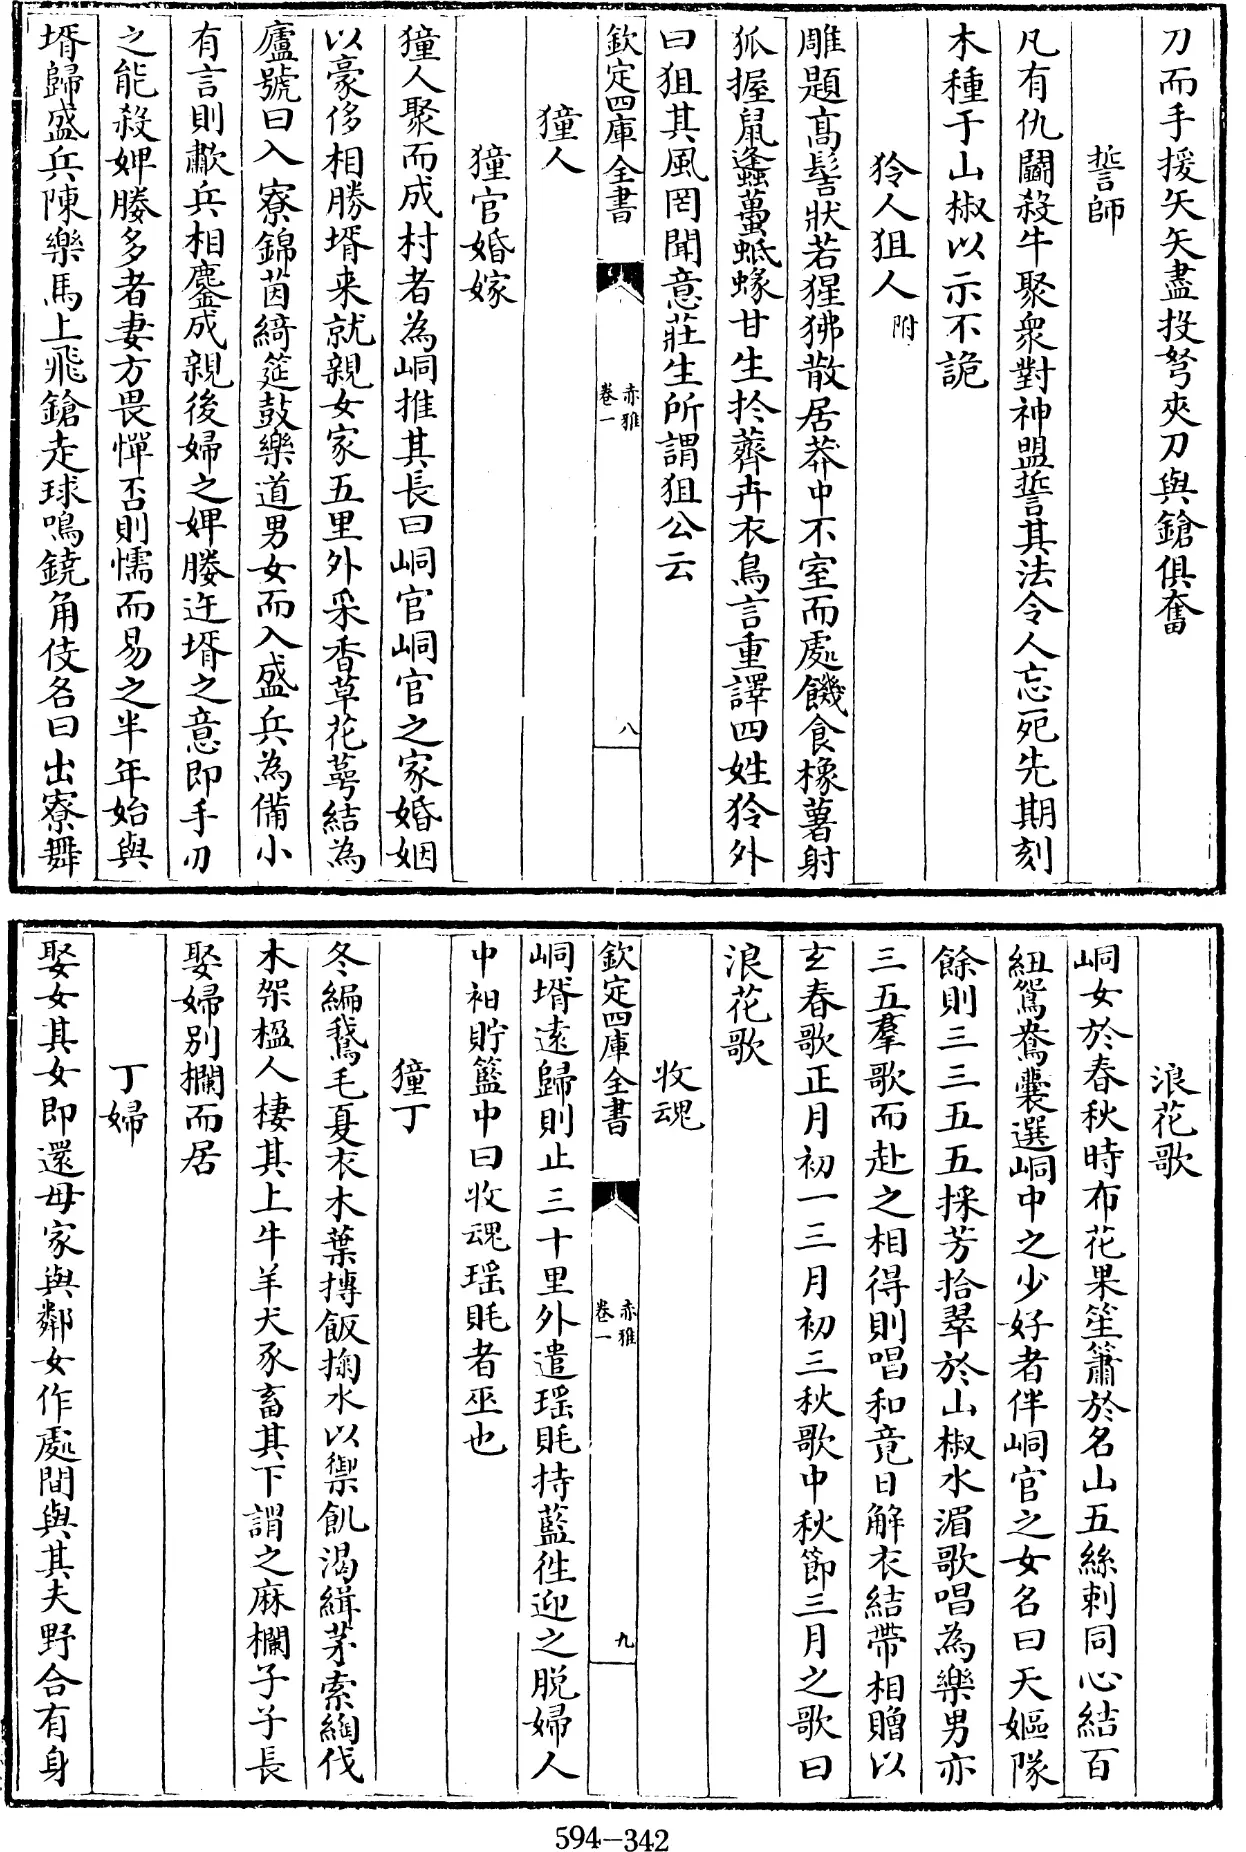 刀而手援矢矢盡投弩夾刀與鎗俱奮
誓師
凡有仇鬬殺牛聚衆對神盟誓其法令人忘死先期刻
木種于山椒以示不詭
狑人狙人附
雕題高髻狀若猩狒散居莽中不室而處饑食橡薯射
狐握鼠逢蟲蠆蚳蝝甘生於薺卉衣鳥言重譯四姓狑外
曰狙其風罔聞意莊生所謂狙公云
欽定四庫全書
赤雅
卷一
八
獞人
獞官婚嫁
獞人聚而成村者為峒推其長曰峒官峒官之家婚姻
以豪侈相勝壻来就親女家五里外采香草花萼結為
廬號曰入寮錦茵綺筵鼓樂道男女而入盛兵為備小
有言則㱃兵相鏖成親後婦之婢媵迕壻之意即手刃
之能殺婢媵多者妻方畏憚否則懦而易之半年始與
壻歸盛兵陳樂馬上飛鎗走球鳴鐃角伎名曰出寮舞
浪花歌
峒女於春秋時布花果笙簫於名山五絲刺同心結百
紐鴛鴦囊選峒中之少好者伴峒官之女名曰天姬隊
餘則三三五五採芳拾翠於山椒水湄歌唱為樂男亦
三五羣歌而赴之相得則唱和竟日解衣結帶相贈以
去春歌正月初一三月初三秋歌中秋節三月之歌曰
浪花歌
收魂
欽定四庫全書
赤雅
卷一
九
峒壻遠歸則止三十里外遣瑶䀮持籃往迎之脱婦人
中衵貯籃中曰收魂瑶䀮者巫也
獞丁
冬編鵞毛夏衣木葉摶飯掬水以禦飢渴緝茅索綯伐
木架楹人棲其上牛羊犬豕畜其下謂之麻欄子子長
娶婦别欄而居
丁婦
娶女其女即還母家與鄰女作處間與其夫野合有身
594—342